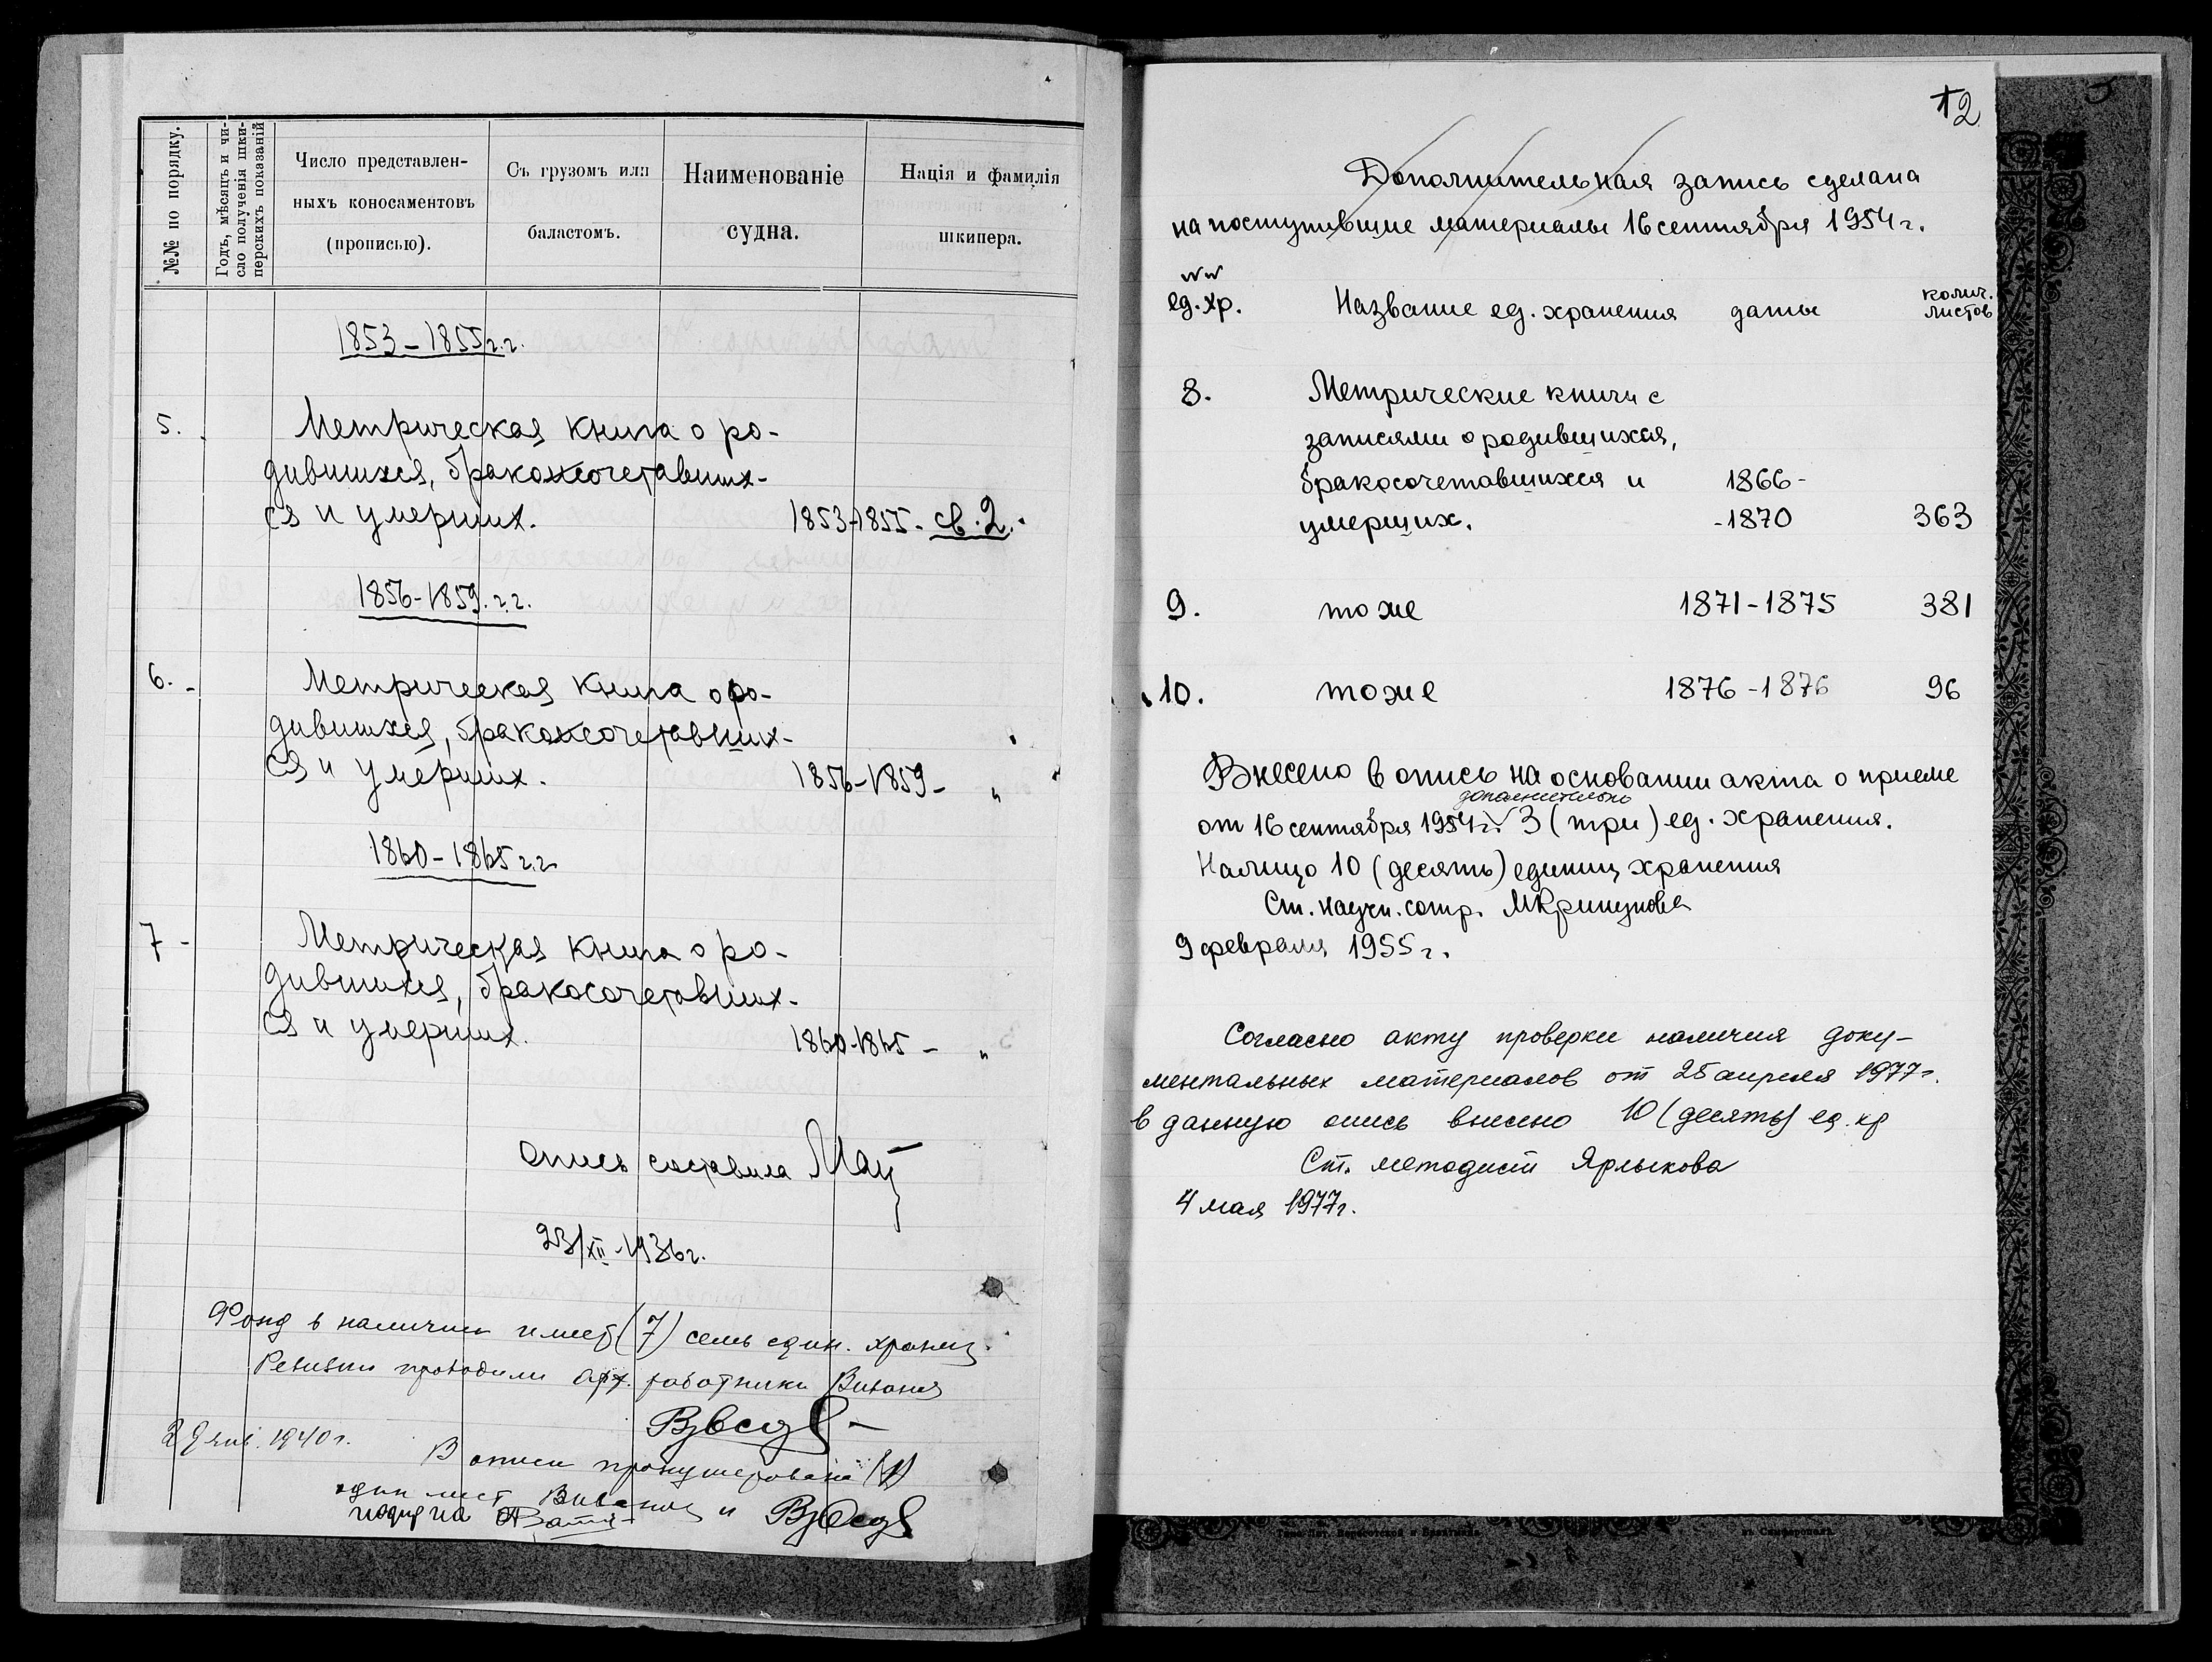 №№ по порядку.
Годъ, мѣсяцъ и чи-
сло полученія шки-
перскихъ показаній
Число представлен-
ныхъ коносаментовъ
(прописью).
Съ грузомъ или
баластомъ.
Наименованіе
судна.
Нація и фамилія
шкипера.
1853-1855 г.г.
5. Метрическая книга о ро-
дившихся, бракосочетавших-
ся и умерших. 1853-1855 - св. 2.
1856-1859. г.г.
6. - Метрическая книга о ро-
дившихся, бракосочетавших-
ся и умерших. 1856-1859 - "
1860-1865 г.г.
7 - Метрическая книга о ро-
дившихся, бракосочетавших-
ся и умерших. 1860-1865 - "
Опись составила
23/XII-1936 г.
Фонд в наличии имеет (7) семь един. хранен.
Ревизии проводили арх. работники
29 янв. 1940 г.
В описи пронумеровано (1)
один лист и
12
Дополнительная запись сделана
на поступившие материалы 16 сентября 1954 г.
№№
ед. хр. Название ед. хранения даты колич.
листов
8. Метрические книги с
записями о родившихся,
бракосочетавшихся и 1866-
умерших. -1870 363
9. тоже 1871-1875 381
10. тоже 1876-1876 96
Внесено в опись на основании акта о приеме
дополнительно
от 16 сентября 1954 г. 3 (три) ед. хранения.
Налицо 10 (десять) единиц хранения
Ст. научн. сотр.
9 февраля 1955 г.
Согласно акту проверки наличия доку-
ментальных материалов от 25 апреля 1977 г.
в данную опись внесено 10 (десять) ед. хр
Ст. методист Ярлыкова
4 мая 1977 г.
въ Симферополѣ.